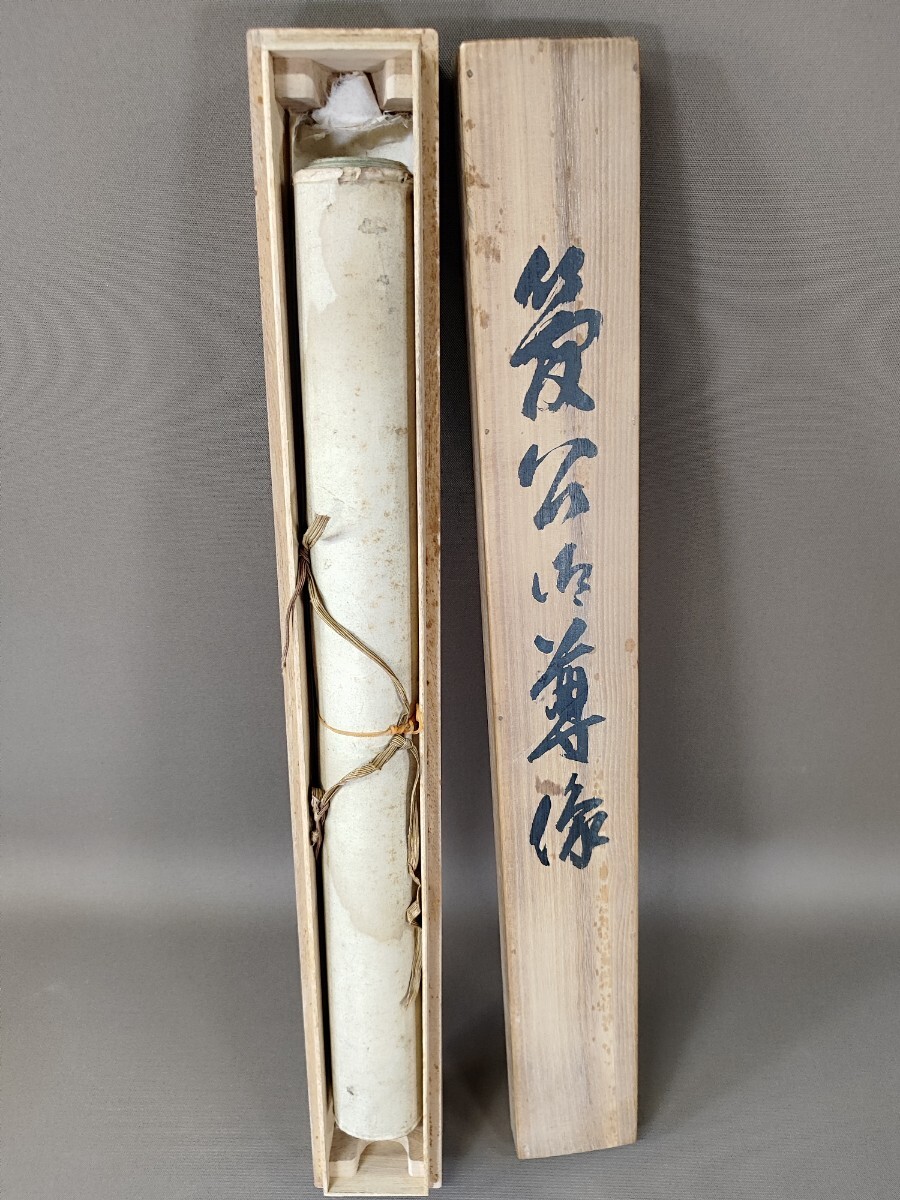 菅公御尊像